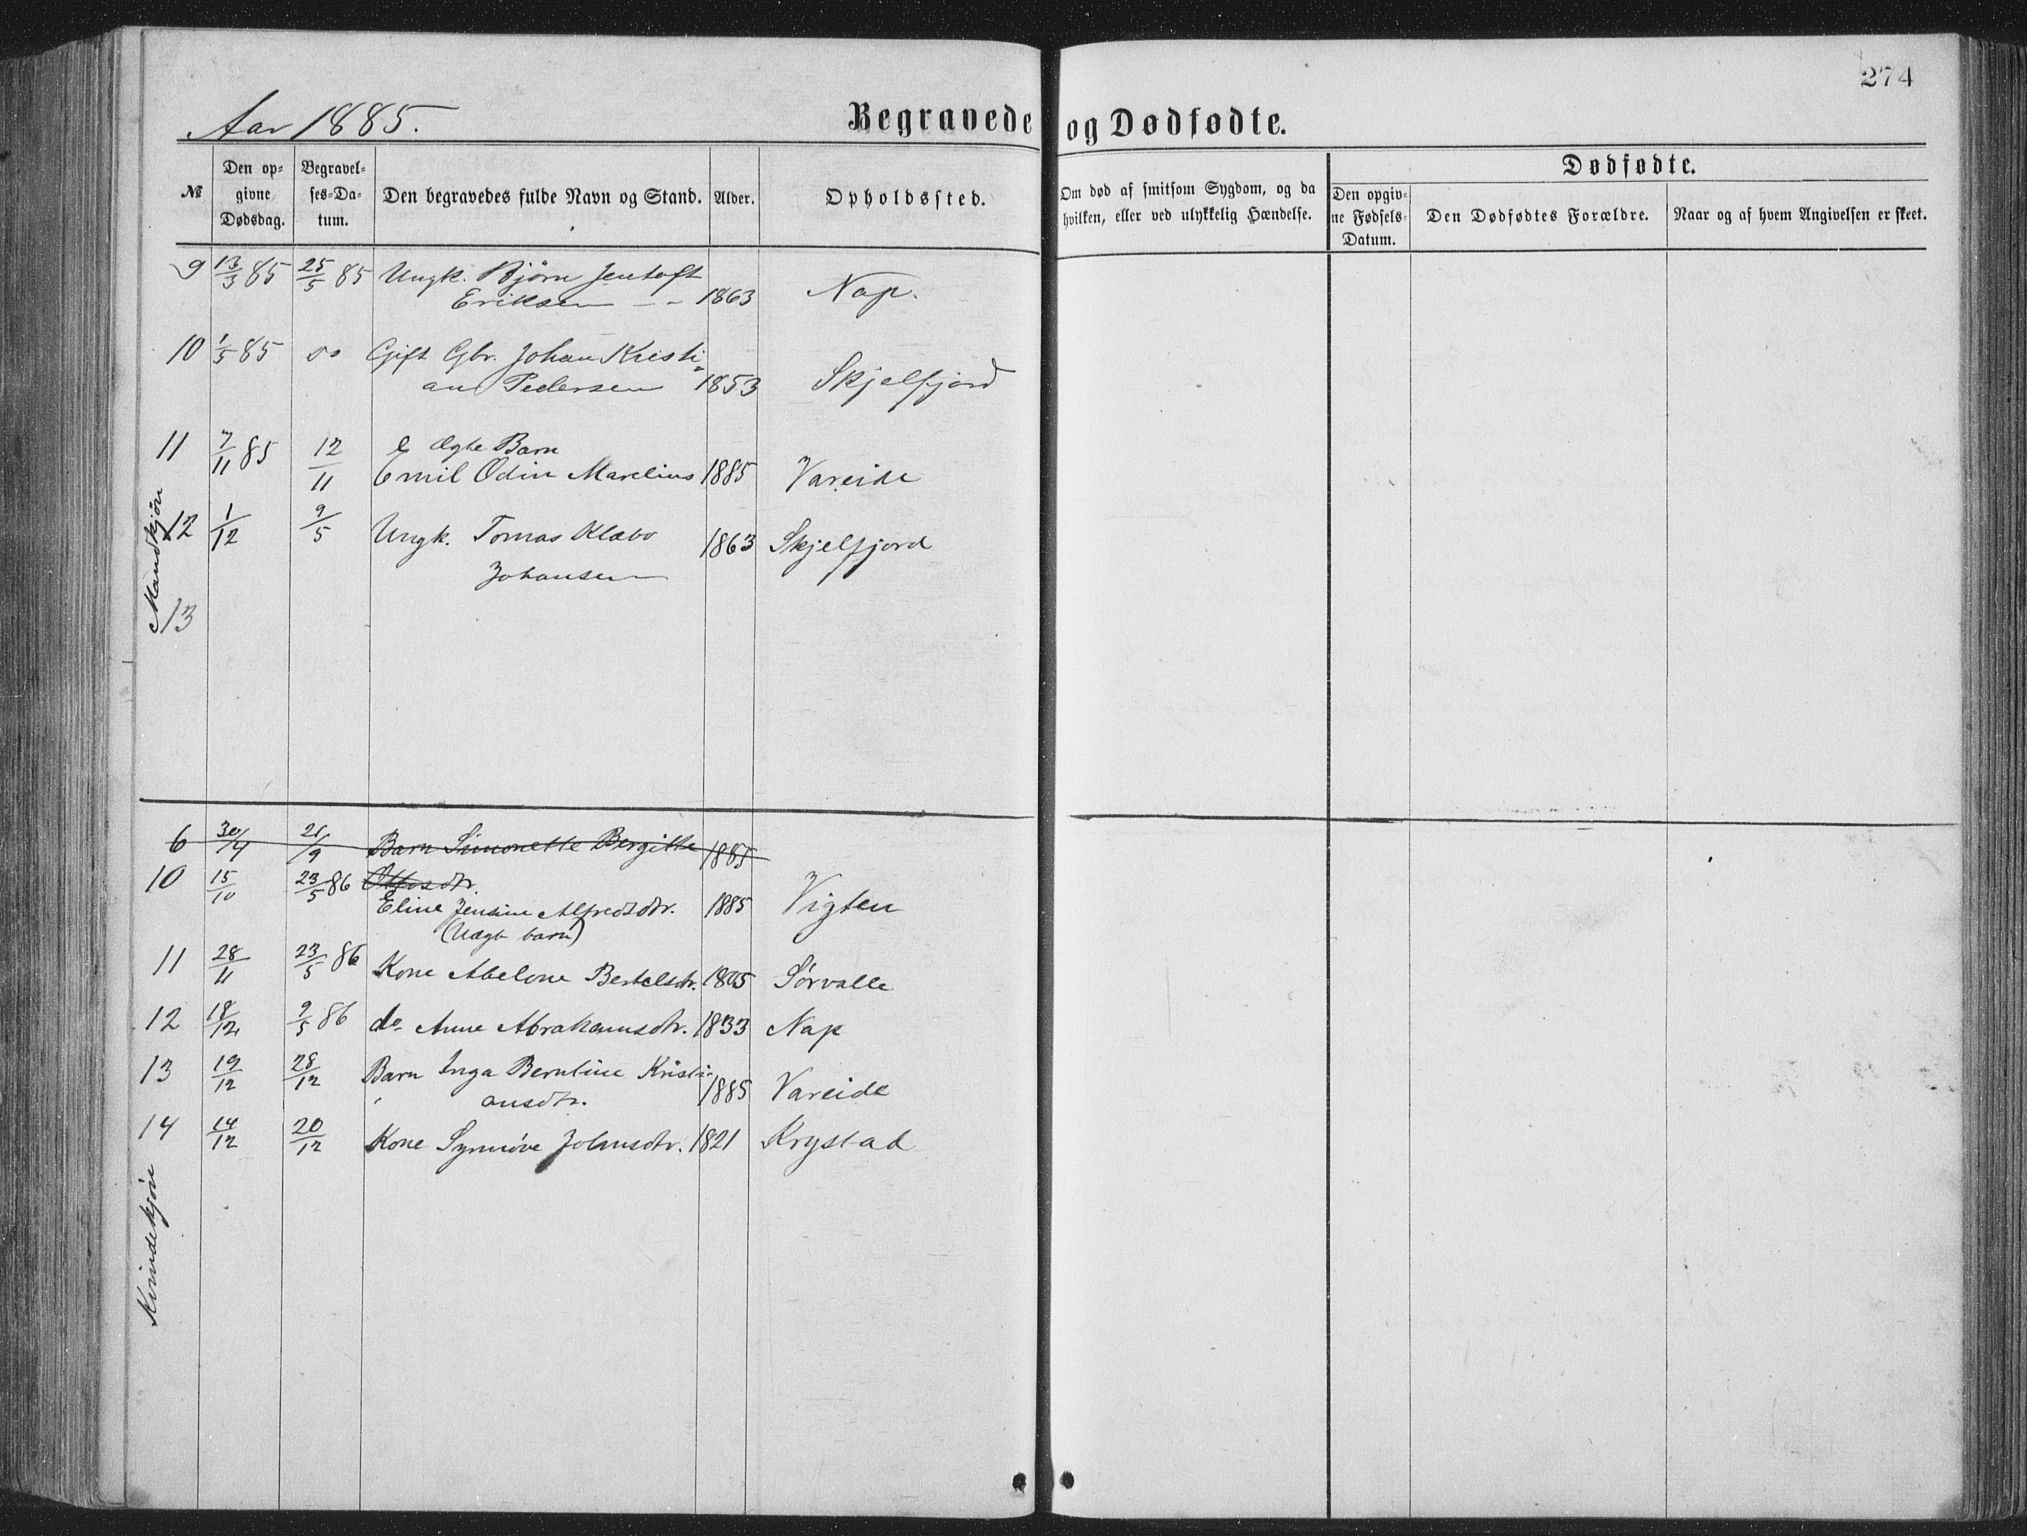 274
Aar 1885.
Begravede og Dødfødte.
№
Den op-
givne
Dødsdag.
Begravel-
ses-Da-
tum.
Den begravedes fulde Navn og Stand.
Alder.
Opholdssted.
Om død af smitsom Sygdom, og da
hvilken, eller ved ulykkelig Hændelse.
Dødfødte.
Den opgiv-
ne Fødsels-
Datum.
Den Dødfødtes Forældre.
Naar og af hvem Angivelsen er skeet.
9 13/3 85 25/5 85 Ungk. Bjørn Jentoft
Eriksen 1863 Nap.
10 1/5 85 do Gift Gbr. Johan Kristi-
an Pedersen 1853 Skjelfjord
11 7/11 85 12/11 Ægte Barn
Emil Odin Marelius 1885 Vareide
12 1/12 9/5 Ungk. Tomas Klæbo 1863 Skjelfjord
Johansen
13
Mandkjøn
6 30/4 21/9 Barn Simonette Bergitte 1885
Ottosdtr.
10 15/10 23/5 86 Eline Jensine Alfredsdtr. 1885 Vigten
(Uægt barn)
11 28/11 23/5 86 Kone Abelone Bertelsdtr. 1805 Sørvalle
12 18/12 9/5 86 do Anne Abrahamsdtr. 1833 Nap
13 19/12 28/12 Barn Inga Berntine Kristi-
ansdtr. 1885 Vareide
14 14/12 20/12 Kone Synnøve Johnsdtr. 1821 Krystad
Kvindekjøn